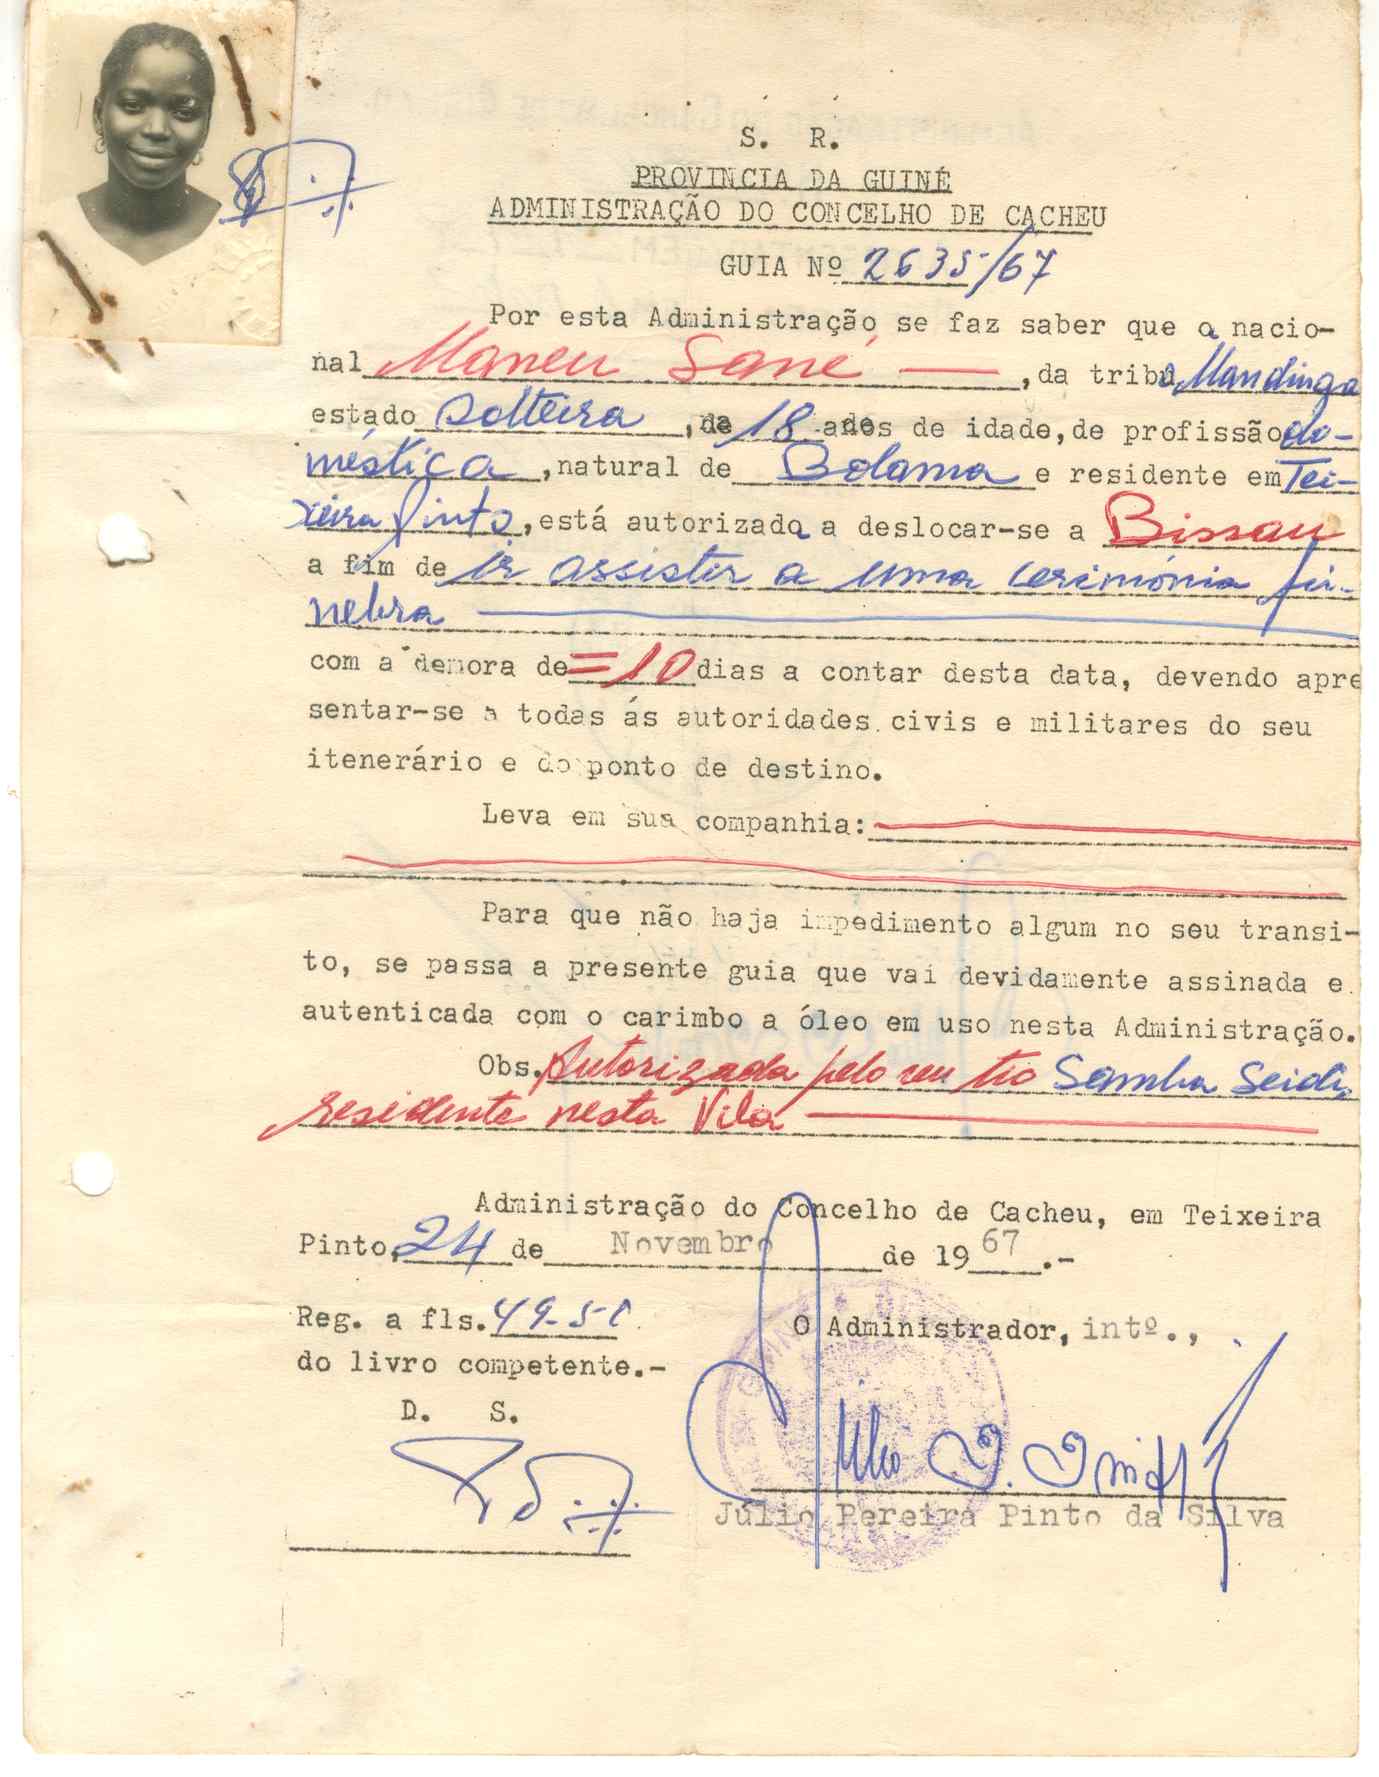 S. R.
PROVINCIA DA GUINÉ
ADMINISTRAÇÃO DO CONCELHO DE CACHEU
GUIA Nº 2635/67
Por esta Administração se faz saber que a nacio-
nal Maneu Sané ,da tribu Mandinga
estado solteira , de 18 anos de idade,de profissão do-
méstica ,natural de Bolama e residente em Tei-
xeira Pinto ,está autorizada a deslocar-se a Bissau
a fim de ir assistir a uma cerimónia fú-
nebra
com a demora de =10 dias a contar desta data, devendo apre
sentar-se a todas ás autoridades civis e militares do seu
itenerário e do ponto de destino.
Leva em sua companhia:
Para que não haja impedimento algum no seu transi-
to, se passa a presente guia que vai devidamente assinada e
autenticada com o carimbo a óleo em uso nesta Administração.
Obs. Autorizada pelo seu tio Samba Seidi,
residente nesta Vila
Administração do Concelho de Cacheu, em Teixeira
Pinto, 24 de Novembro de 1967.-
Reg. a fls. 49-50
O Administrador, intº.,
do livro competente.-
D. S.
Júlio Pereira Pinto da Silva